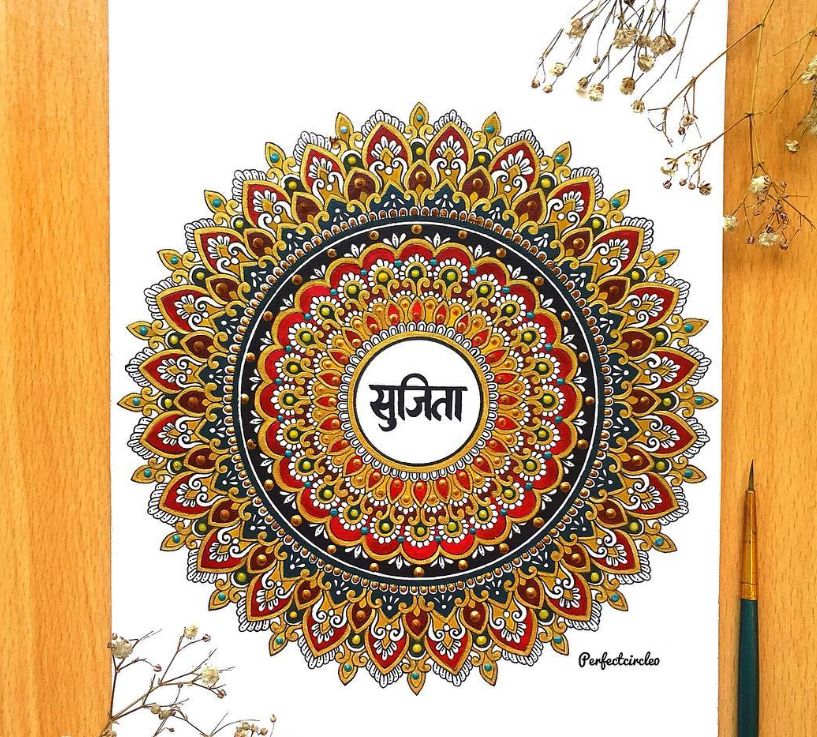 सुजिता
Perfectcircleo